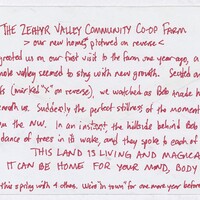 THE ZEPHYR VALLEY COMMUNITY CO-OP FARM
> our new home, pictured on reverse <
greeted us on our first visit to the farm one year ago, a
hole valley seemed to stir with new growth. Seated on
(marked "X" on reverse), we watched as Bob trade h
neath us. Suddenly the perfect stillness of the moment
m the NW. In an instant, the hillside behind Bob
dance of trees in its wake, and they spoke to each of
THIS LAND IS LIVING AND MAGICA
IT CAN BE HOME FOR YOUR MIND, BODY
this spring with 4 others. We're in town for one more year before